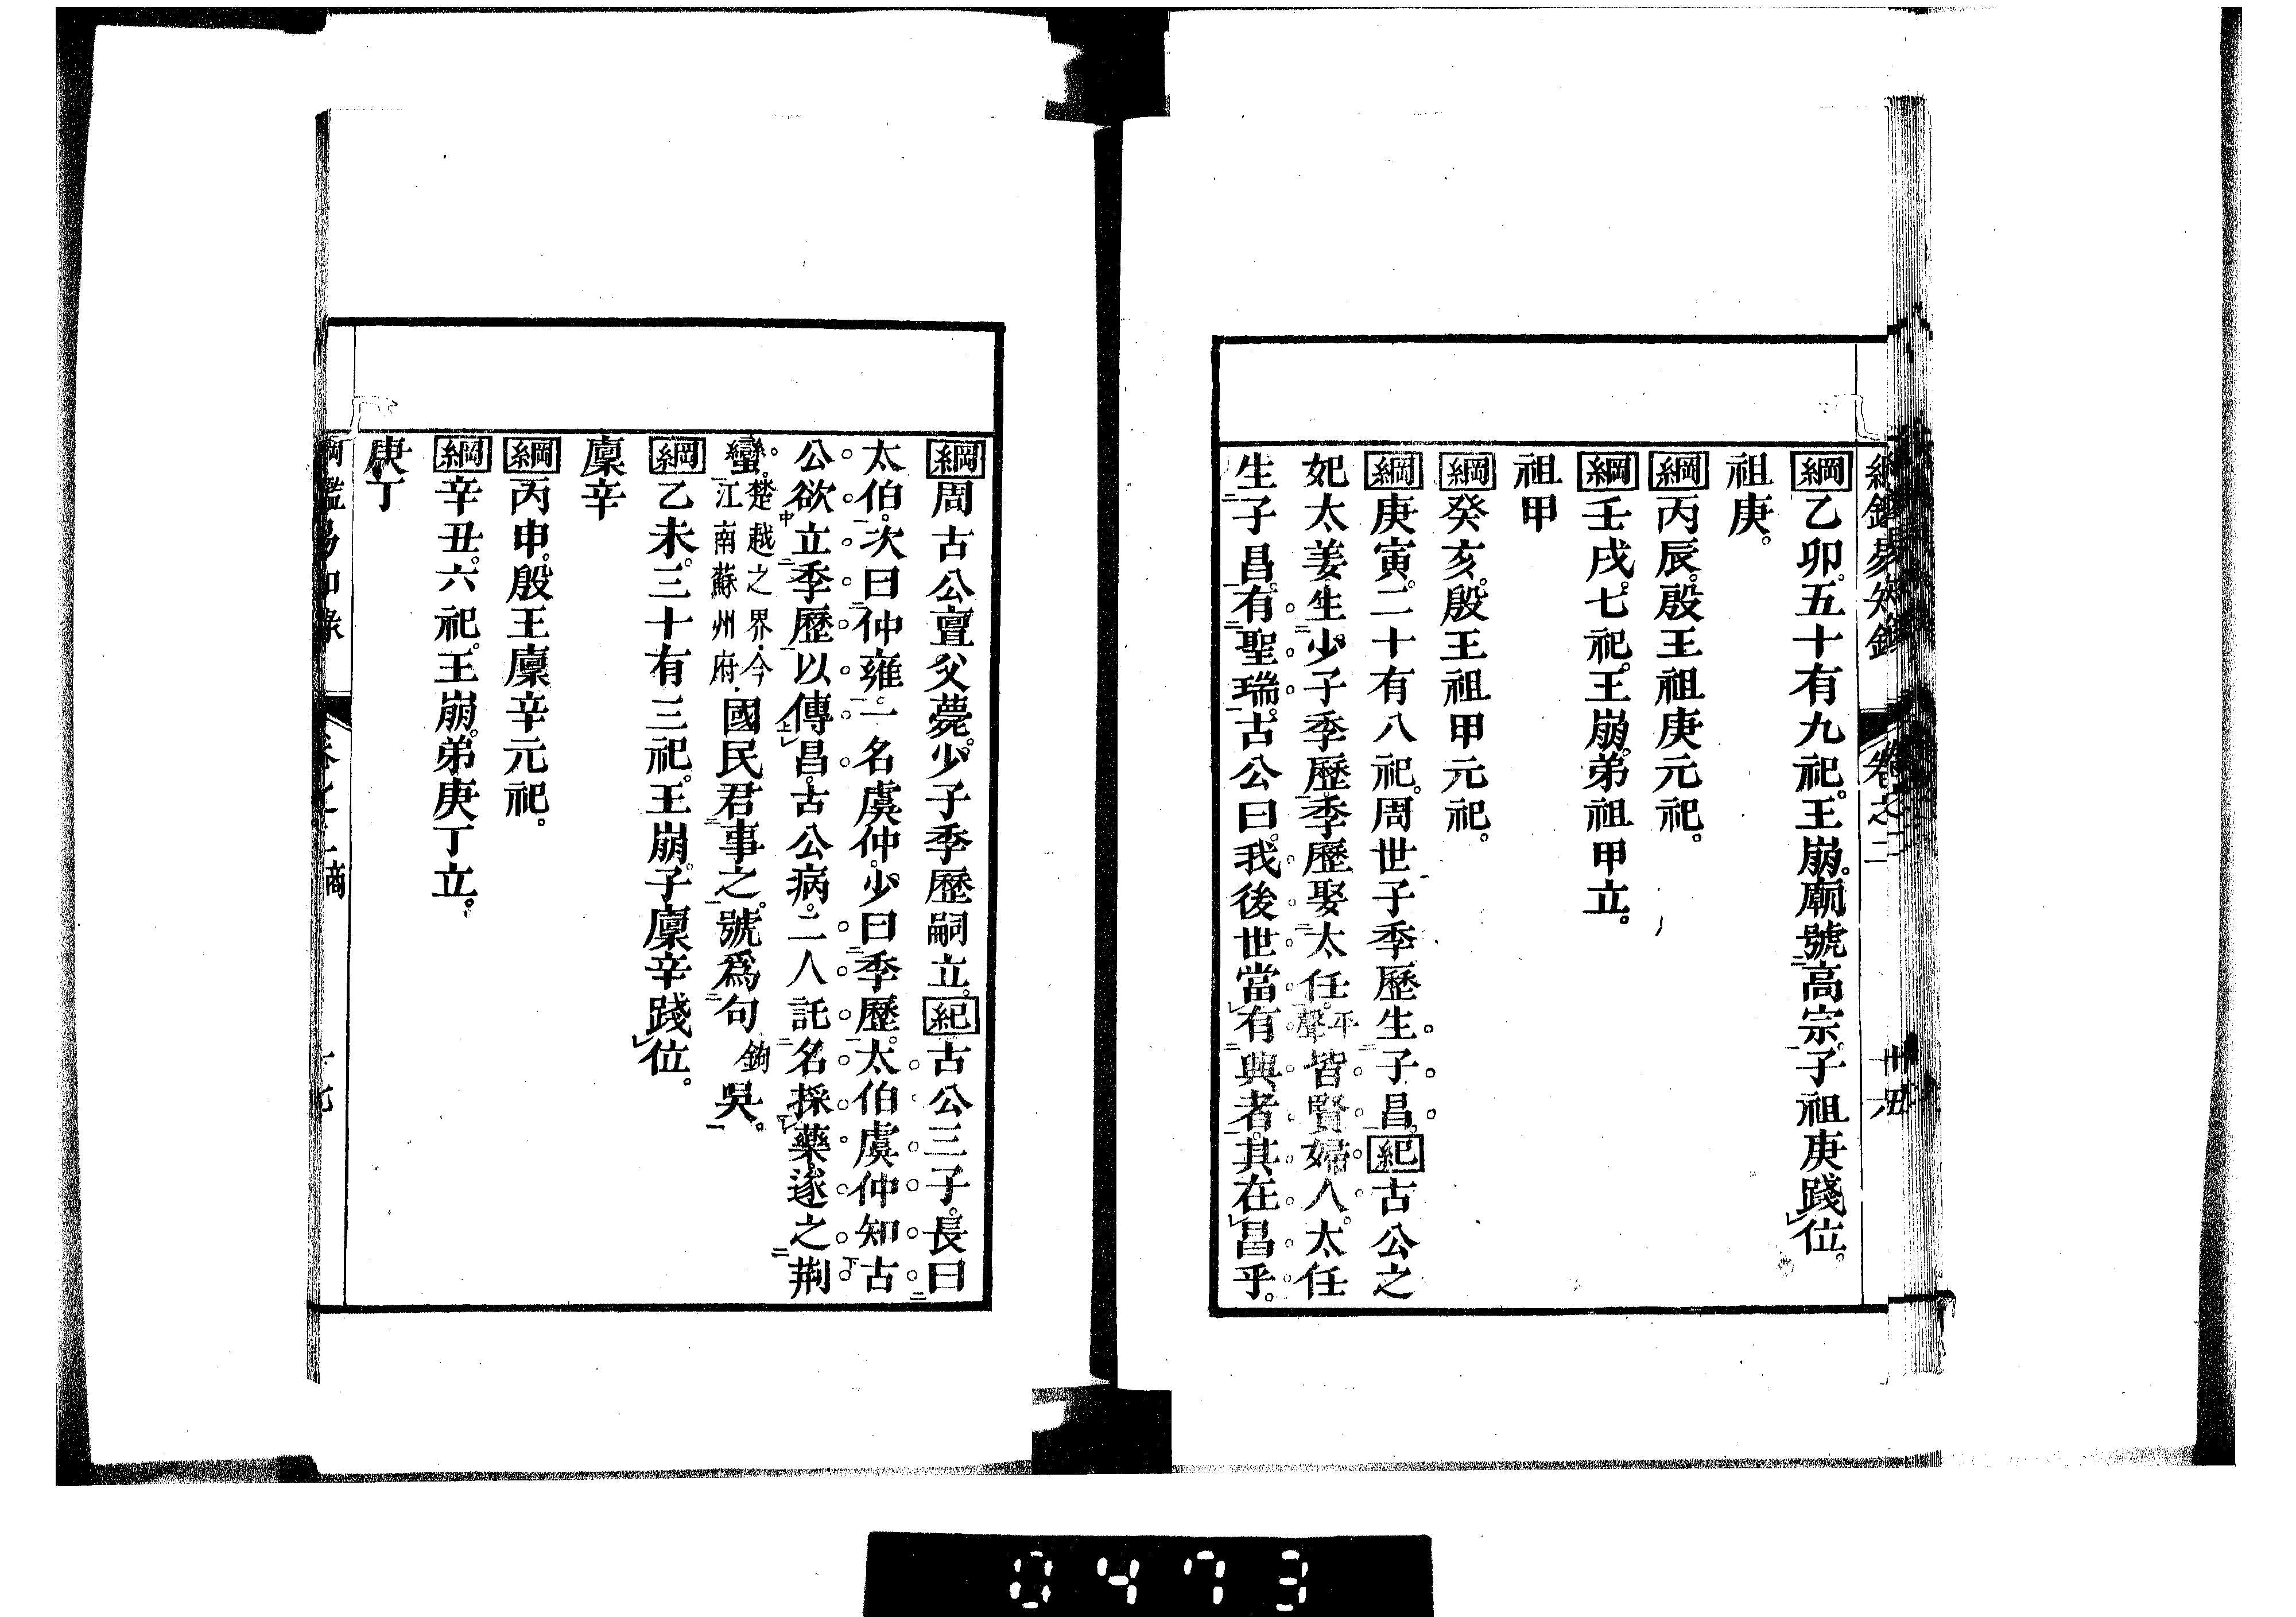 綱乙卯。五十有九祀。王崩。廟號高宗。子祖庚踐位。
祖庚。
綱丙辰。殷王祖庚元祀。
綱壬戌。七祀。王崩。弟祖甲立。
祖甲
綱癸亥。殷王祖甲元祀。
綱庚寅。二十有八祀。周世子季歷生子昌。紀古公之
妃太姜生少子季歷。季歷娶太任。平聲皆賢婦人。太任
生子昌。有聖瑞。古公曰。我後世當有興者。其在昌乎。
綱周古公亶父薨。少子季歷嗣立。紀古公三子。長曰
太伯。次曰仲雍。一名虞仲。少曰季歷。太伯虞仲知古
公欲立季歷以傳昌。古公病。二人託名採藥遂之荆
蠻。楚越之界。今江南蘇州府。國民君事之。號爲句鉤吳。
綱乙未。三十有三祀。王崩。子廩辛踐位。
廩辛
綱丙申。殷王廩辛元祀。
綱辛丑。六祀。王崩。弟庚丁立。
庚丁
0473